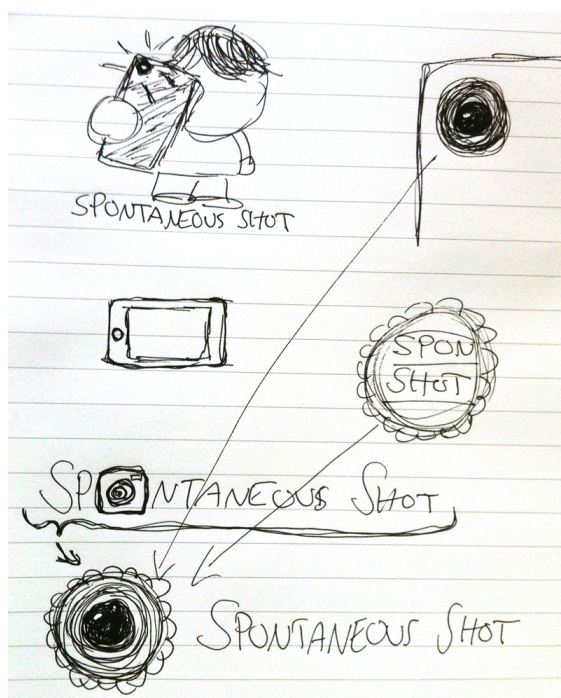 SPONTANEOUS SHOT
SPON
SHOT
SPONTANEOUS SHOT
SPONTANEOUS SHOT